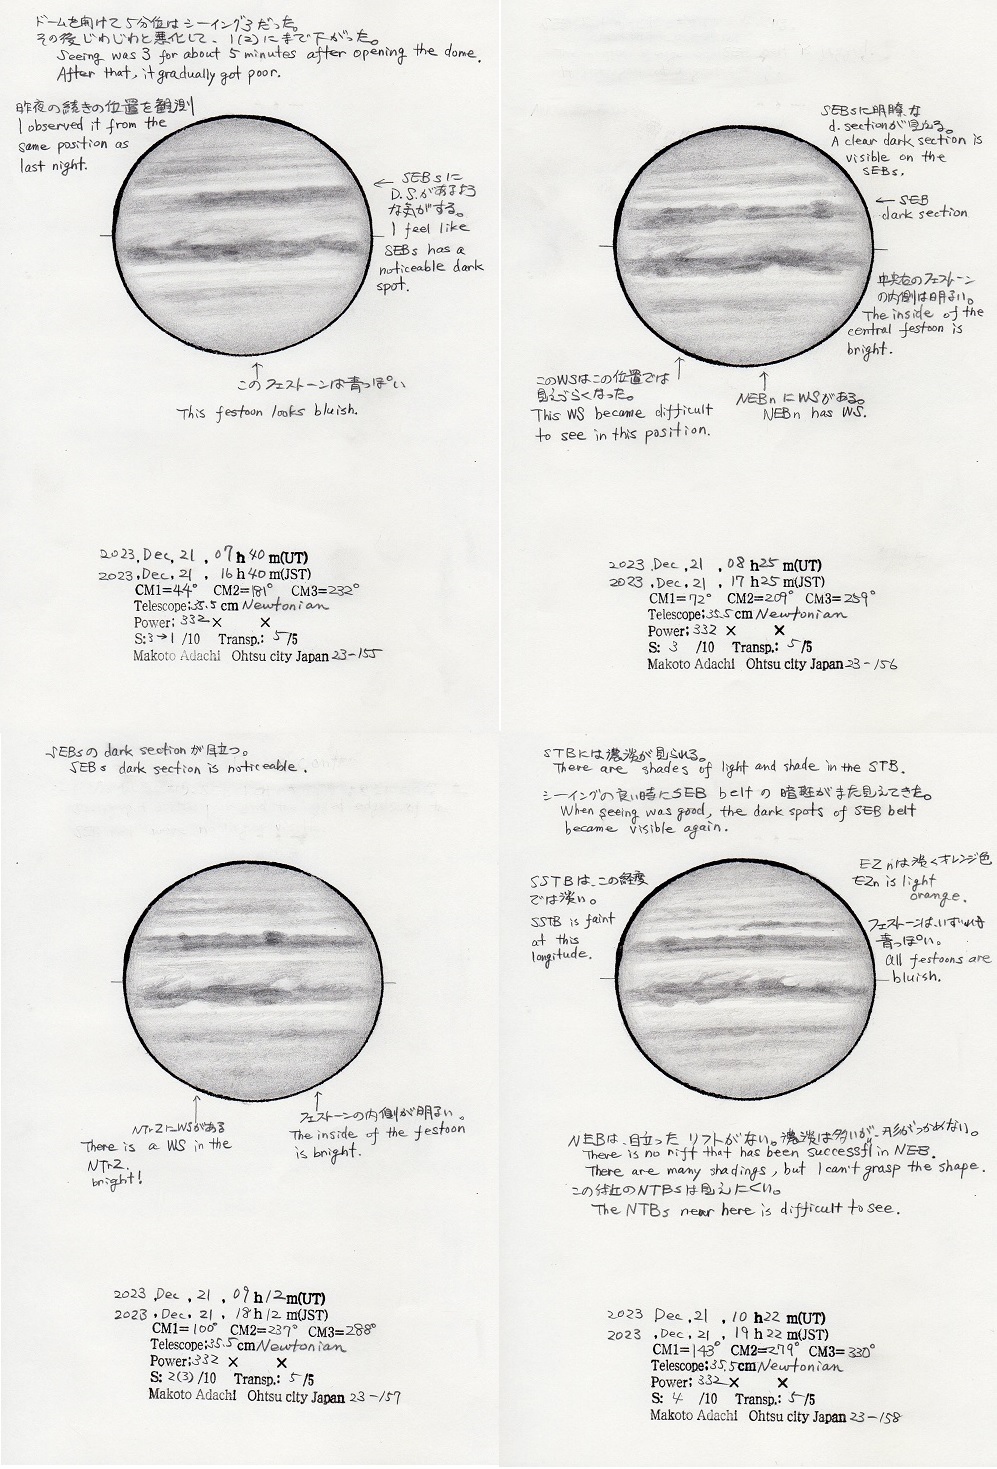 ドームを開けて5分位はシーイング3だった。
その後じわじわと悪化して、1(2)にまで下がった。
Seeing was 3 for about 5 minutes after opening the dome.
After that, it gradually got poor.
昨夜の続きの位置を観測
I observed it from the
same position as
last night.
← SEBsに
D.S.があるよう
な気がする。
I feel like
SEBs has a
noticeable dark
spot.
このフェストーンは青っぽい
This festoon looks bluish.
2023.Dec.21 , 07h40m(UT)
2023.Dec.21 , 16h40m(JST)
CM1=44° CM2=181° CM3=232°
Telescope:35.5cm Newtonian
Power:332× ×
S:3→1 /10 Transp.: 5/5
Makoto Adachi Ohtsu city Japan 23-155
SEBsに明瞭な
d. sectionが見える。
A clear dark section is
visible on the
SEBs.
← SEB
dark section
中央右のフェストーン
の内側は明るい。
The inside of the
central festoon is
bright.
このWSはこの位置では
見えづらくなった。
This WS became difficult
to see in this position.
NEBnにWSがある。
NEBn has WS.
2023 Dec .21 , 08h25m(UT)
2023 .Dec.21 , 17h25m(JST)
CM1=72° CM2=209° CM3=259°
Telescope:35.5cm Newtonian
Power:332 × ×
S: 3 /10 Transp.: 5/5
Makoto Adachi Ohtsu city Japan 23-156
SEBsのdark sectionが目立つ。
SEBs dark section is noticeable.
NTrZにWSがある
There is a WS in the
NTrZ.
bright!
フェストーンの内側が明るい。
The inside of the festoon
is bright.
2023 .Dec .21 , 09h12m(UT)
2023 .Dec.21 , 18h12m(JST)
CM1=100° CM2=237° CM3=288°
Telescope:35.5cm Newtonian
Power:332 × ×
S: 2(3) /10 Transp.: 5/5
Makoto Adachi Ohtsu city Japan 23-157
STBには濃淡が見られる。
There are shades of light and shade in the STB.
シーイングの良い時にSEB beltの暗斑がまた見えてきた。
When seeing was good, the dark spots of SEB belt
became visible again.
SSTBは、この経度
では淡い。
SSTB is faint
at this
longitude.
EZnは淡くオレンジ色
EZn is light
orange.
フェストーンは、いずれも
青っぽい。
all festoons are
bluish.
NEBは、目立ったリフトがない。濃淡は多いが、形がつかめない。
There is no rift that has been successfl in NEB.
There are many shadings, but I can't grasp the shape.
この付近のNTBsは見えにくい。
The NTBs near here is difficult to see.
2023 Dec .21 , 10h22m(UT)
2023 .Dec.21 , 19h22m(JST)
CM1=143° CM2=279° CM3=330°
Telescope:35.5cm Newtonian
Power:332× ×
S: 4 /10 Transp.: 5/5
Makoto Adachi Ohtsu city Japan 23-158